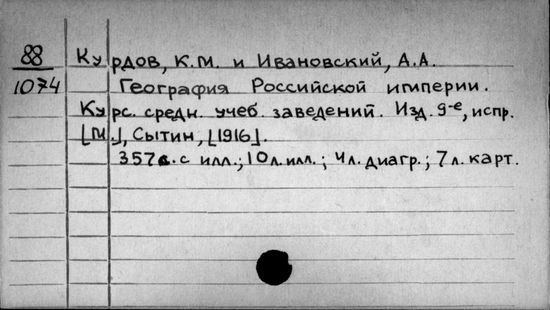 88 Курдов, К.М. и Ивановский, А.А.
1074 География Российской империи.
Курс. средн. учеб. заведений. Изд. 9-е, испр.
[М.], Сытин, [1916].
357с. с илл.; 10л. илл.; 4л. диагр.; 7л. карт.